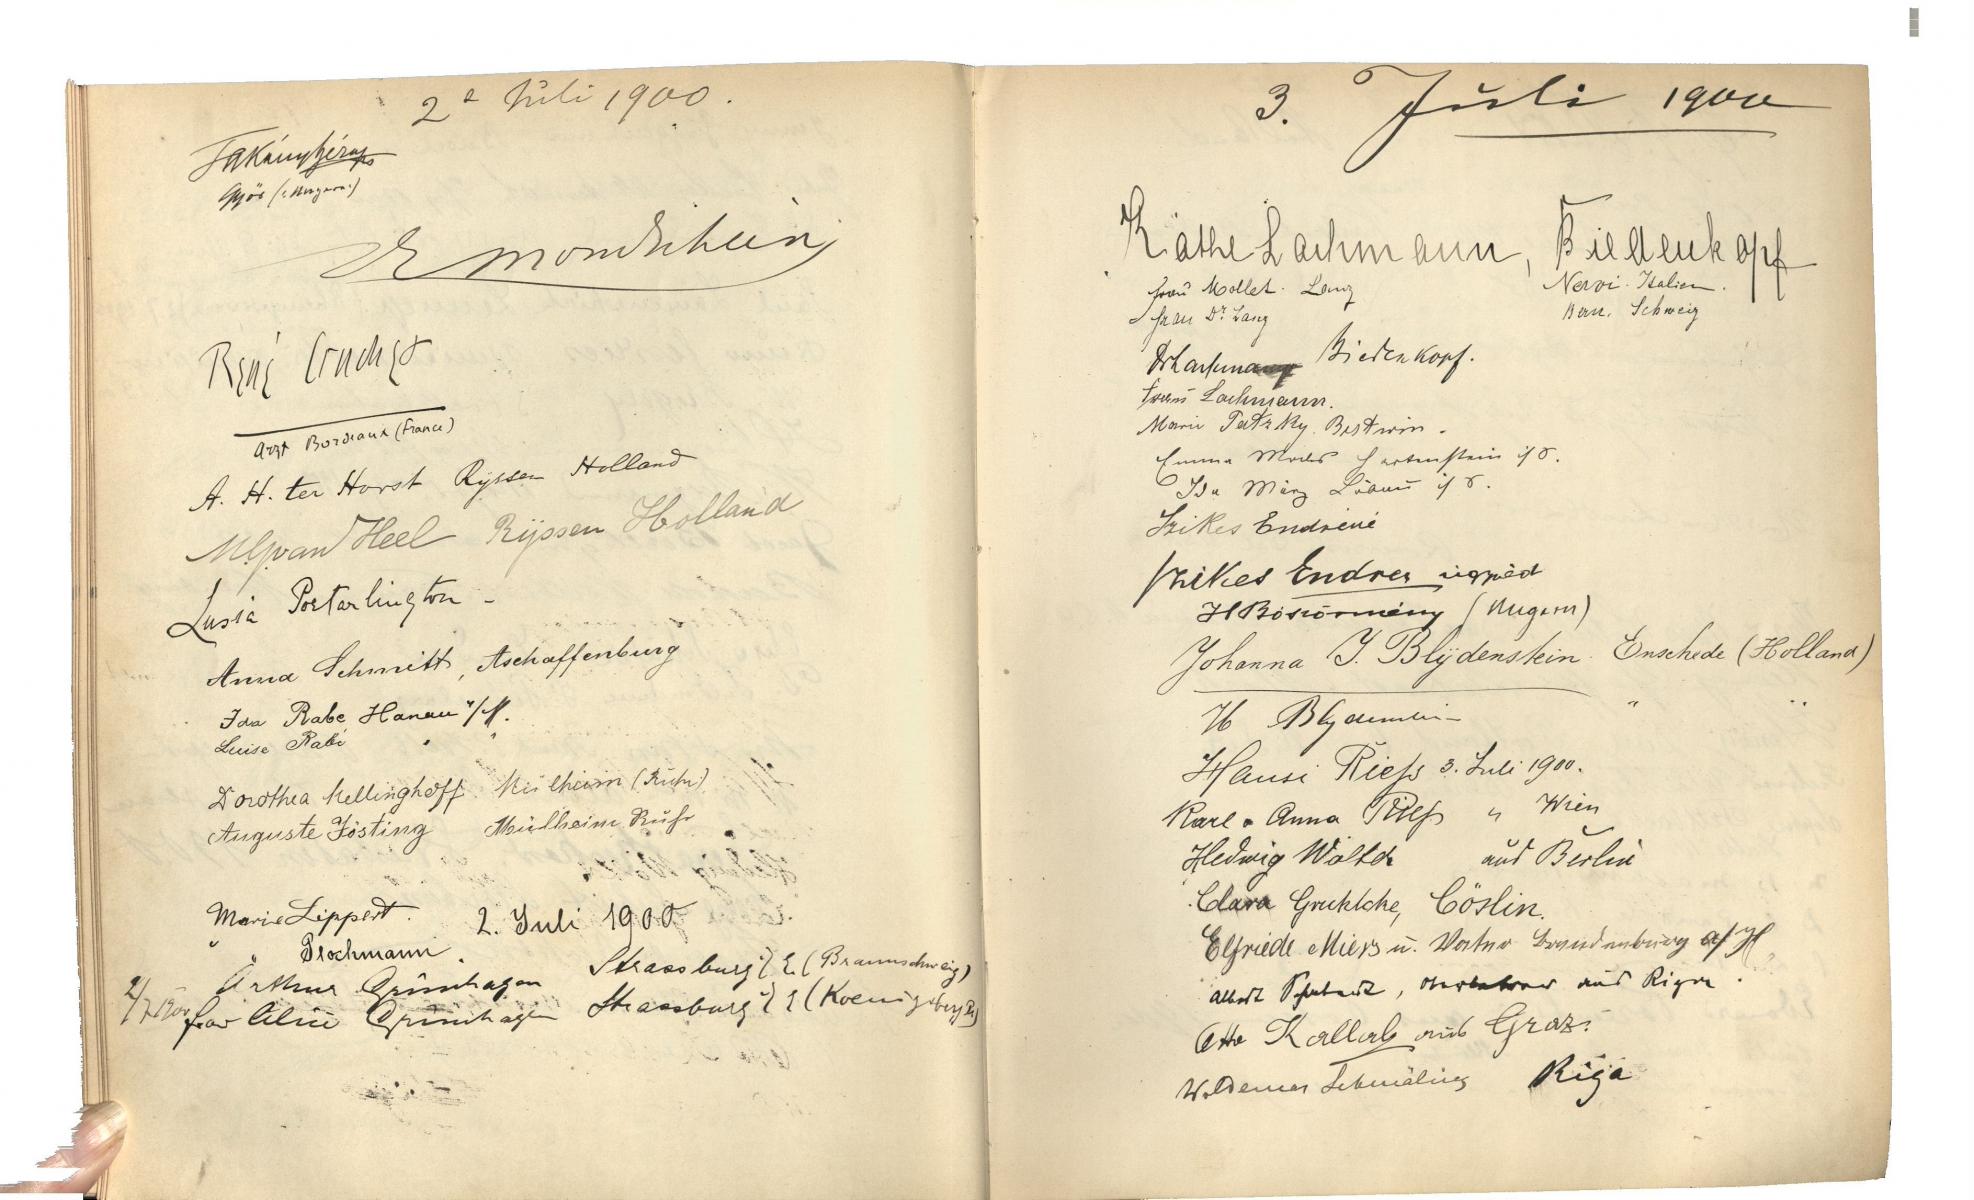 2e Juli 1900.
Győr (: Ungarn :)
E Mondschein
René Cruchet
Arzt Bordeaux (France)
A. H. ter Horst Ryssen Holland
van Heel Rijssen Holland
Portarlington -
Anna Schmitt, Aschaffenburg
Ida Rabe Hanau a/M.
Luise Rabe " "
Dorothea Mellinghoff Mülheim (Ruhr)
Auguste Josting Mülheim Ruhr
Marie Lippert. 2. Juli 1900
" " Plochmann.
Arthur Grünhagen Strassburg i/E. (Braunschweig)
Frau Alice Grünhagen Strassburg i/E (Koenigsberg Pr)
3. Juli 1900
Käthe Lachmann, Biedenkopf
Frau Mollet-Lanz Nervi-Italien.
Frau Dr Lanz Bern. Schweiz
Dr Lachmann Biedenkopf.
Frau Lachmann.
Marie Tatzky
Emma Hartenstein i/S.
Ida März Löbau i/S.
Szikes Endréné
Szikes Endre ügyvéd
H Böszörmény (Ungarn)
Johanna J. Blijdenstein. Enschede (Holland)
H Blijdenstein " "
Hansi Riess 3. Juli 1900.
Karl & Anna Riess " Wien
Hedwig aus Berlin
Clara Cöslin.
Elfriede Miers u. Vater Brandenburg a/H
Albert aus Riga.
Otto Kallab aus Graz.
Woldemar Schmäling Riga